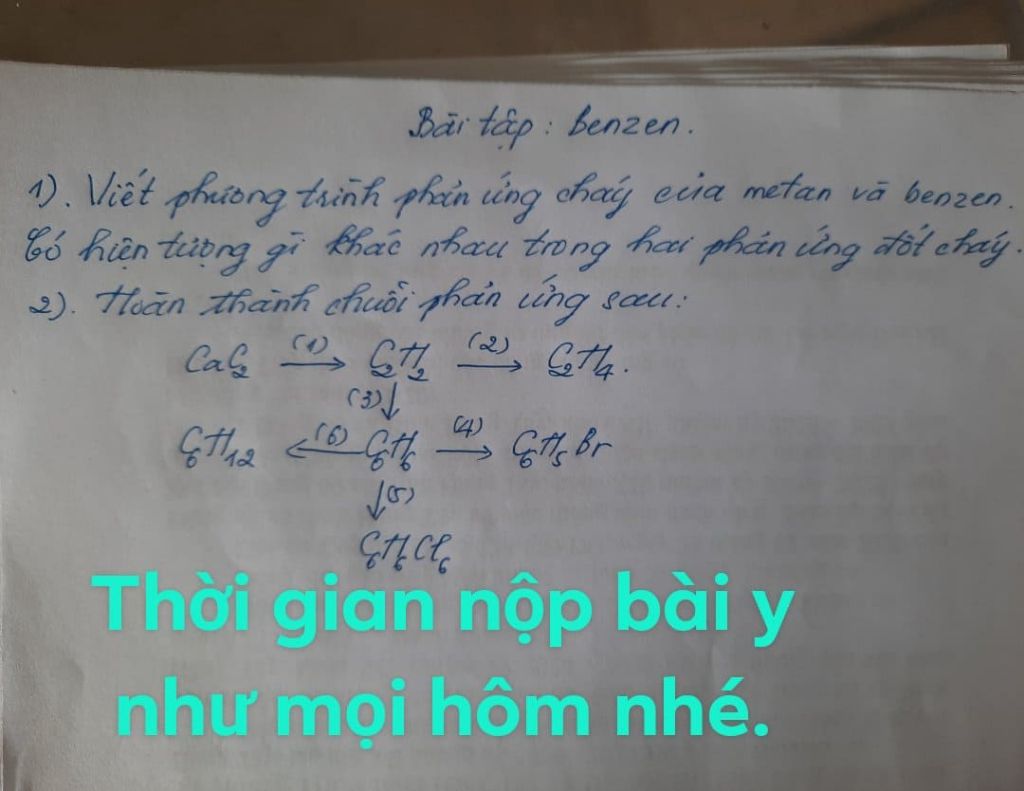 Bài tập: benzen.
1). Viết phương trình phản ứng cháy của metan và benzen.
Có hiện tượng gì khác nhau trong hai phản ứng đốt cháy.
2). Hoàn thành chuỗi phản ứng sau:
CaC₂ —(1)→ C₂H₂ —(2)→ C₂H₄.
(3)↓
C₆H₁₂ ←(6)— C₆H₆ —(4)→ C₆H₅Br
↓(5)
C₆H₆Cl₆
Thời gian nộp bài y
như mọi hôm nhé.